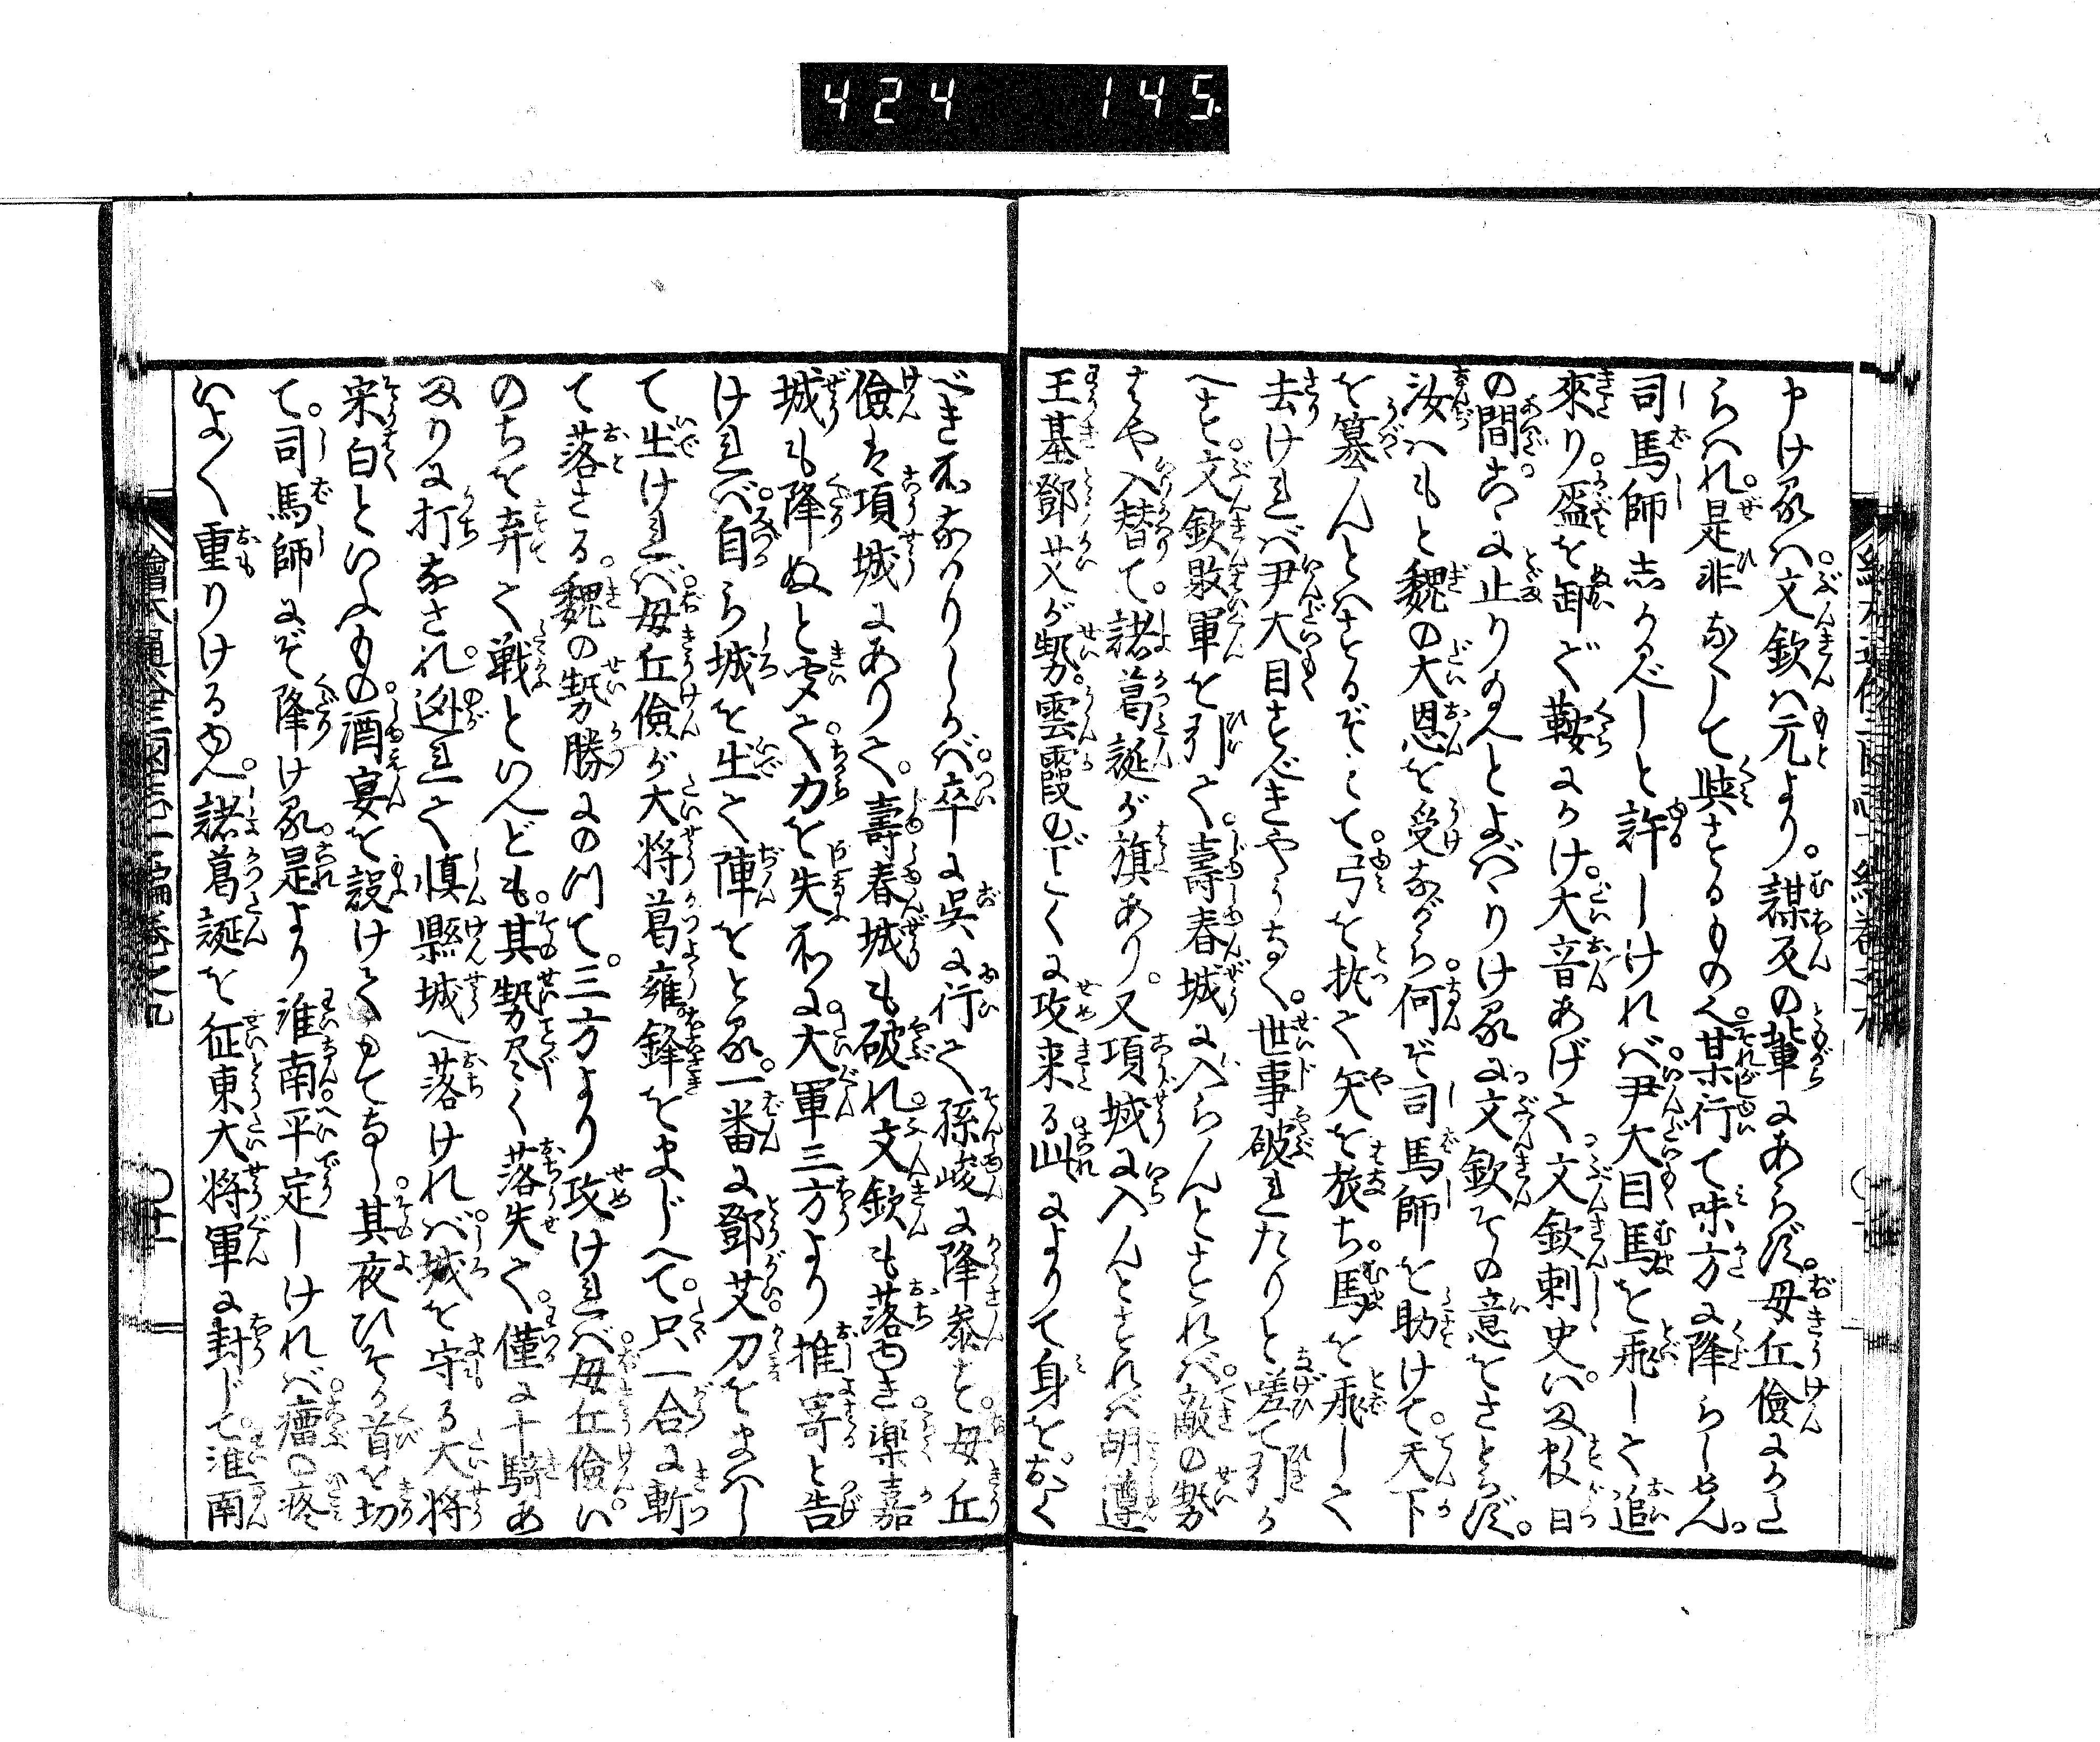 424 145
申けるハ文欽ハ元より。謀反の輩にあらず。毋丘儉にかたら
らハれ。是非なくして與するもの也。某行て味方に降らしめん。
司馬師志かるべしと許しけれバ。尹大目馬を飛して追
來り。盔を卸ぎ鞍にかけ。大音あげて文欽刺史。ハ又數日
の間。こゝに止り給へとよばゝりけるに文欽その意をさとらず。
汝ハもと魏の大恩を受ながら。何ぞ司馬師を助けて。天下
を簒んとハするぞとて。弓を执て矢を放ち。馬を飛して
去けれバ尹大目すべきやうなく。世事破れたりと嗟て引か
へす。文欽敗軍を引て。壽春城に入らんとすれバ。敵の勢
はや入替て。諸葛誕が旗あり。又項城に入んとすれバ胡遵
王基鄧艾が勢。雲霞のごとくに攻来る此によりて身をおく
べき所なかりしかバ。卒に呉に行て孫峻に降参す。毋丘
儉ハ項城にありて。壽春城も破れ。文欽も落ゆき樂嘉
城も降ぬと聞て。力を失ふ所に。大軍三方より推寄と告
けれバ。自ら城を出て陣をとる。一番に鄧艾。刀をまハし
て出けれバ。毋丘儉が大将葛雍。鋒をまじへて。只一合に斬
て落さる。魏の勢勝にのつて。三方より攻けれバ。毋丘儉。い
のちを弃て戦といへども。其勢尽く落失て。僅に十騎あ
まりに打なされ。迯れて慎縣城へ落けれバ。城を守る大将
宋白といふもの。酒宴を設けてもてなし。其夜ひそか首を切
て。司馬師にぞ降ける。是より淮南。平定しけれバ。瘤の疼
いよ〱重りけるゆへ。諸葛誕を征東大将軍に封じて。淮南
繪本通俗三國志七編巻之九